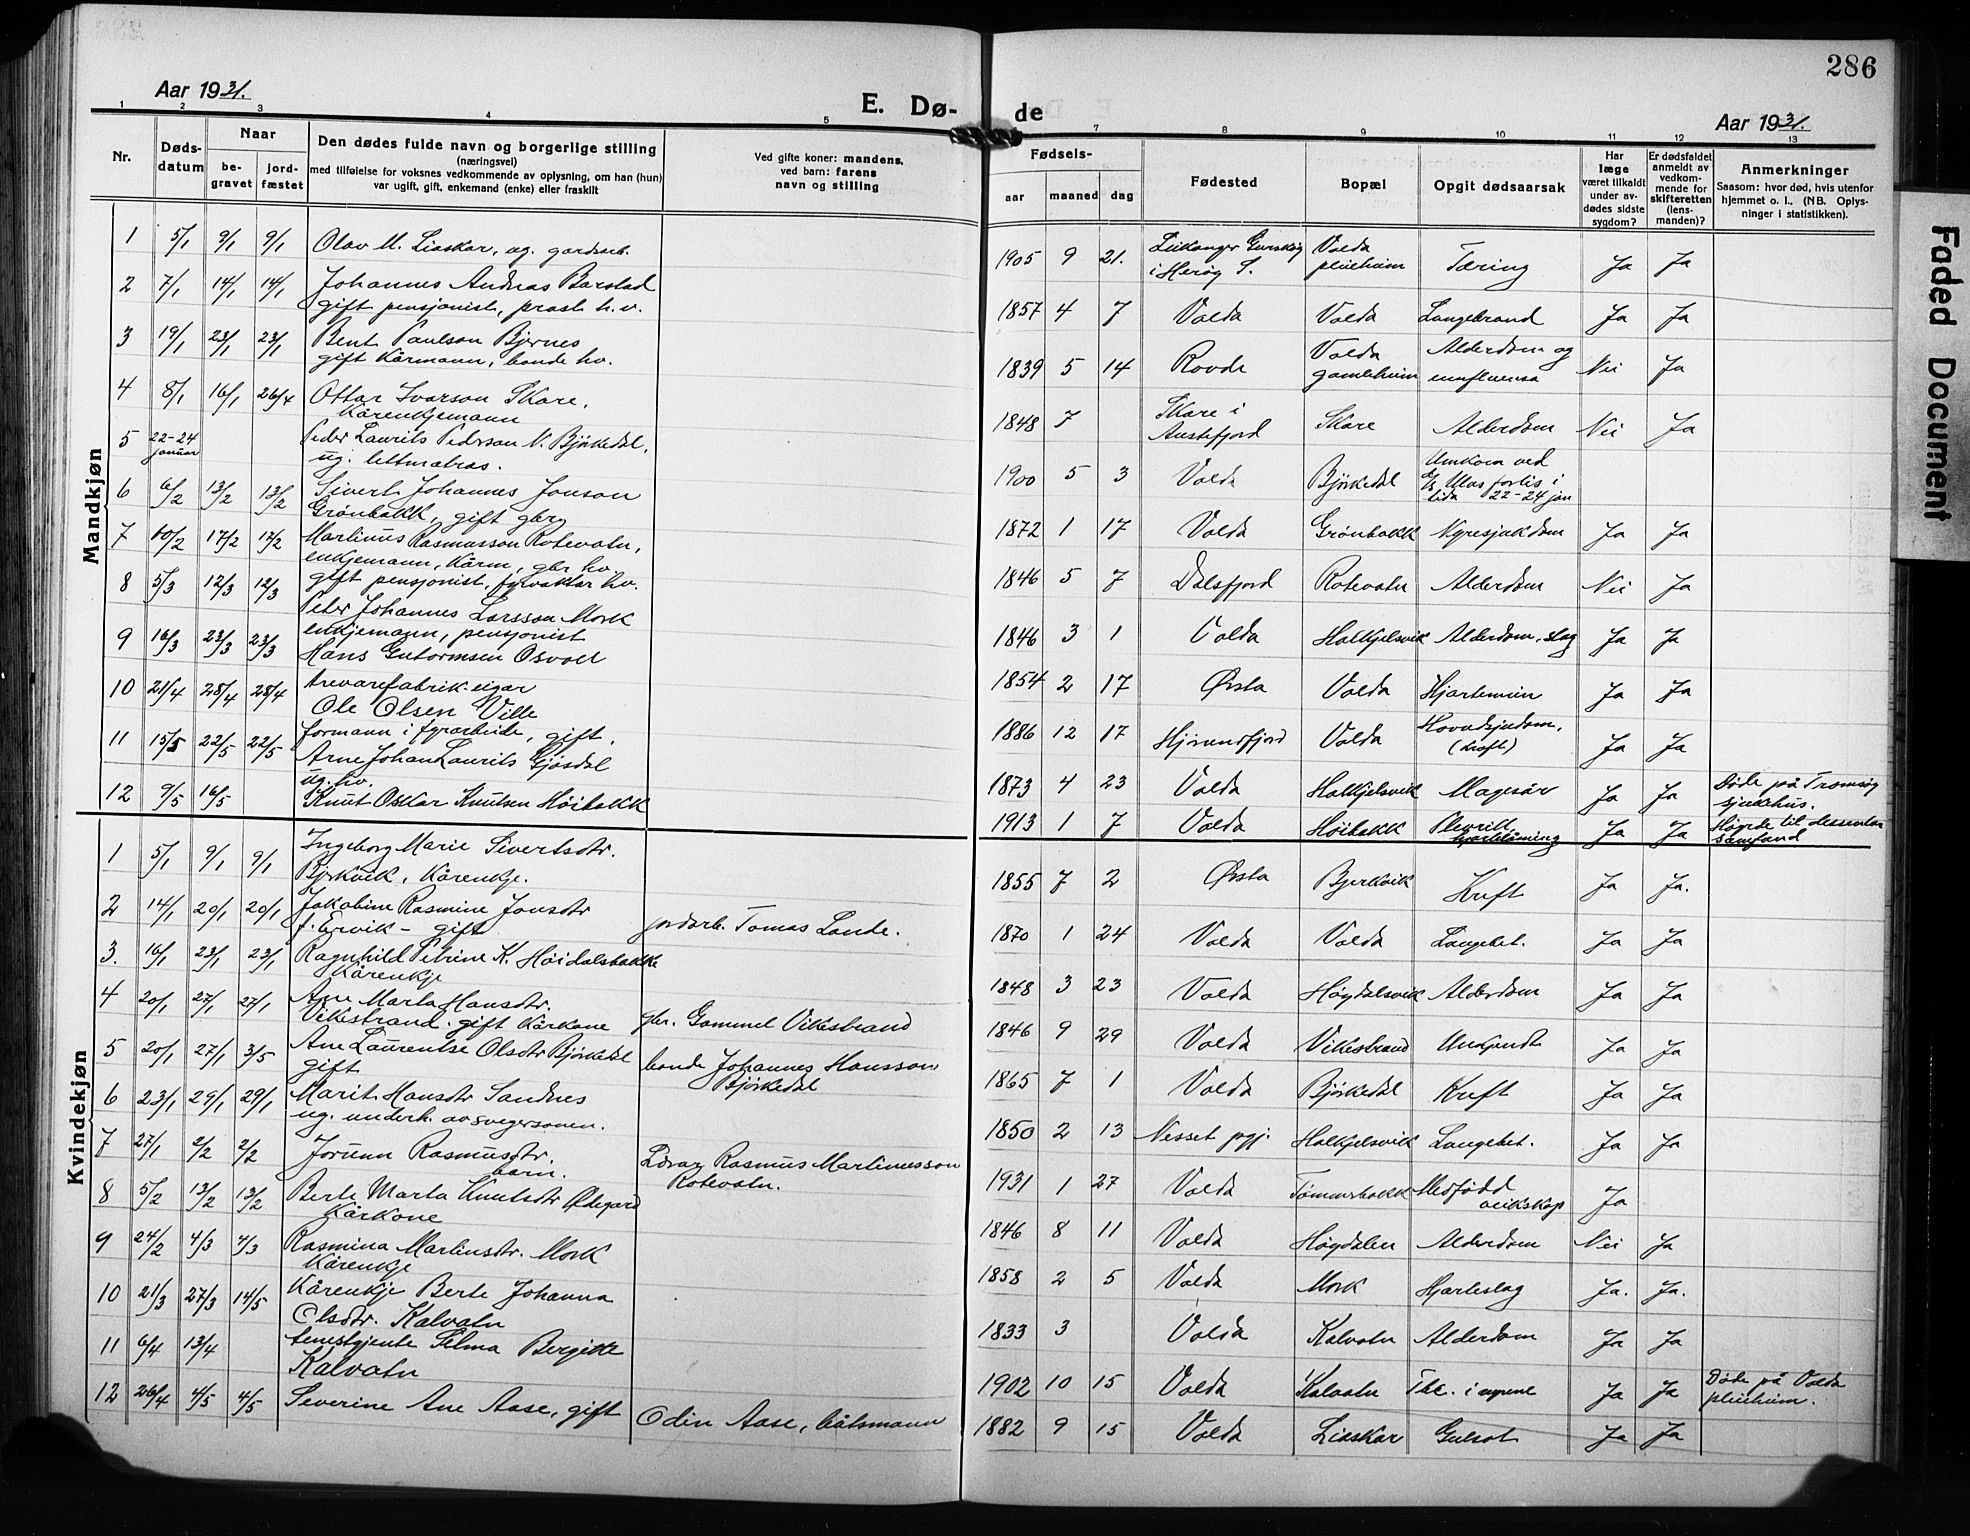 286
Aar 1931.
E. Dø-
de
Aar 1931.
1 2 3 4 5 7 8 9 10 11 12 13
Nr.
Døds-
datum
Naar
be-
gravet
jord-
fæstet
Den dødes fulde navn og borgerlige stilling
(næringsvei)
med tilføielse for voksnes vedkommende av oplysning, om han (hun)
var ugift, gift, enkemand (enke) eller fraskilt
Ved gifte koner: mandens,
ved barn: farens
navn og stilling
Fødsels-
aar maaned dag
Fødested
Bopæl
Opgit dødsaarsak
Har
læge
været tilkaldt
under av-
dødes sidste
sygdom?
Er dødsfaldet
anmeldt av
vedkom-
mende for
skifteretten
(lens-
manden)?
Anmerkninger
Saasom: hvor død, hvis utenfor
hjemmet o. l., (NB. Oplys-
ninger i statistikken).
Mandkjøn
1 5/1 9/1 9/1 Olav M. Liaskar, ug. gardsarb.
1905 9 21. Leikanger Gurskøy
i Herøy S. Volda
pleiehеim Tæring Ja Ja
2 7/1 14/1 14/1 Johannes Andreas Barstad
gift pensjonist, prost h.v.
1857 4 7 Volda Volda Lungebrand Ja Ja
3 19/1 23/1 23/1 Bent Paulson Bjørnes
gift kårmann, bonde hv.
1839 5 14 Rovde Volda
gamleheim Alderdom og
innfluensa Nei Ja
4 8/1 16/1 26/4 Ottar Ivarson Skare,
kårenkjemann
1848 7 Skare i
Austefjord Skare Alderdom Nei Ja
5 22-24
januar Peder Laurits Pederson N. Bjørkedal,
ug. lettmatros.
1900 5 3 Volda Bjørkedal Umkom ved
d/s Ulvs forlis i
tida 22-24 jan
6 6/2 13/2 13/2 Sivert Johannes Jonson
Grønbakk, gift gbr
1872 1 17 Volda Grønbakk Nyresjukdom Ja Ja
7 10/2 17/2 17/2 Martinus Rasmusson Rotevatn,
enkjemann, kårm, gbr hv.
1846 5 7 Dalsfjord Rotevatn Alderdom Nei Ja
8 5/3 12/3 12/3 gift pensjonist, fyrvaktar hv.
Peter Johannes Larsson Mork
1846 3 1 Volda Halkjelsvik Alderdom, slag Ja Ja
9 16/3 23/3 23/3 enkjemann, pensjonist
Hans Gutormsen Osvoll
1854 2 17 Ørsta Volda Hjartemein Ja Ja
10 21/4 28/4 28/4 trevarefabrik-eigar
Ole Olsen Ville
1886 12 17 Hjørundfjord Volda Hovudsjukdom,
(kreft) Ja Ja
11 15/5 22/5 22/5 formann i fyrarbeide, gift.
Arne Johan Laurits Gjøsdal
1873 4 23 Volda Halkjelsvik Magesår Ja Ja Døde på Tromsøy
sjukehus.
12 9/5 16/5 ug. hv.
Knut Oskar Knutsen Høibakk
1913 1 7 Volda Høibakk Plevritt
hjartelåming Ja Ja Høyrde til dissentar
samfund
Kvindekjøn
1 5/1 9/1 9/1 Ingeborg Marie Sivertsdtr.
Bjørkvik, kårenkje.
1855 7 2 Ørsta Bjerkvik Kreft Ja Ja.
2 14/1 20/1 20/1 Jakobine Rasmine Jonsdtr
f. Ervik - gift jordarb. Tomas Lande.
1870 1 24 Volda Volda Lungebet. Ja Ja
3. 16/1 23/1 23/1 Ragnhild Petrine K. Høidalsbakke
kårenkje
1848 3 23 Volda Høgdalsvik Alderdom Ja Ja
4 20/1 27/1 27/1 Ane Marta Hansdtr.
Vikestrand. gift kårkone gbr. Gammel Vikestrand
1846 9 29 Volda Vikestrand Ukjendt Ja Ja
5 20/1 27/1 3/5 Ane Laurentse Olsdtr Bjørkedal
gift bonde Johannes Hansson
Bjørkedal
1865 7 1 Volda Bjørkedal Kreft Ja Ja
6 23/1 29/1 29/1 Marit Hansdtr Sandnes
ug. underh. av svegersonen.
1850 2 13 Nesset pgj. Halkjelsvik Lungebet. Ja Ja
7 27/1 2/2 2/2 Jorunn Rasmusdtr.
barn. Lærar Rasmus Martinusson
Rotevatn.
1931 1 27 Volda Tømmerbakk Medfødd
veikskap Ja
8 5/2 13/2 13/2 Berte Marta Knutsdtr Ødegard
Kårkone
1846 8 11 Volda Høgdalen Alderdom Nei Ja
9 24/2 4/3 4/3 Rasmina Martinsdtr. Mork
Kårenkje
1858 2 5 Volda Mork Hjarteslag Ja. Ja.
10 21/3 27/3 14/5 Kårenkje Berte Johanna
Olsdtr. Kalvatn
1833 3 Volda Kalvatn Alderdom Ja Ja
11 6/4 13/4 tenestjente Selma Bergitte
Kalvatn
1902 10 15 Volda Kalvatn Tbc. i nyrene Ja Ja Døde på Volda
pleieheim.
12 26/4 4/5 4/5 Severine Ane Aase, gift Odin Aase, båtsmann
1882 9 15 Volda Liaskar Gulsot Ja Ja
Faded Document